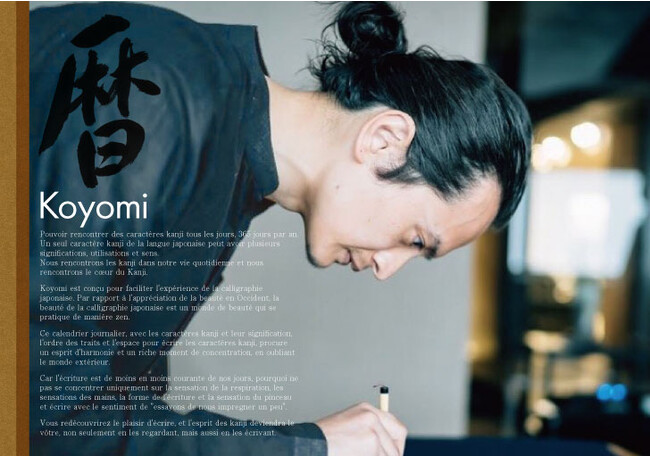 暦
Koyomi
Pouvoir rencontrer des caractères kanji tous les jours, 365 jours par an.
Un seul caractère kanji de la langue japonaise peut avoir plusieurs
significations, utilisations et sens.
Nous rencontrons les kanji dans notre vie quotidienne et nous
rencontrons le cœur du Kanji.
Koyomi est conçu pour faciliter l'expérience de la calligraphie
japonaise. Par rapport à l'appréciation de la beauté en Occident, la
beauté de la calligraphie japonaise est un monde de beauté qui se
pratique de manière zen.
Ce calendrier journalier, avec les caractères kanji et leur signification,
l'ordre des traits et l'espace pour écrire les caractères kanji, procure
un esprit d'harmonie et un riche moment de concentration, en oubliant
le monde extérieur.
Car l'écriture est de moins en moins courante de nos jours, pourquoi ne
pas se concentrer uniquement sur la sensation de la respiration, les
sensations des mains, la forme de l'écriture et la sensation du pinceau
et écrire avec le sentiment de "essayons de nous imprégner un peu".
Vous redécouvrirez le plaisir d'écrire, et l'esprit des kanji deviendra le
vôtre, non seulement en les regardant, mais aussi en les écrivant.